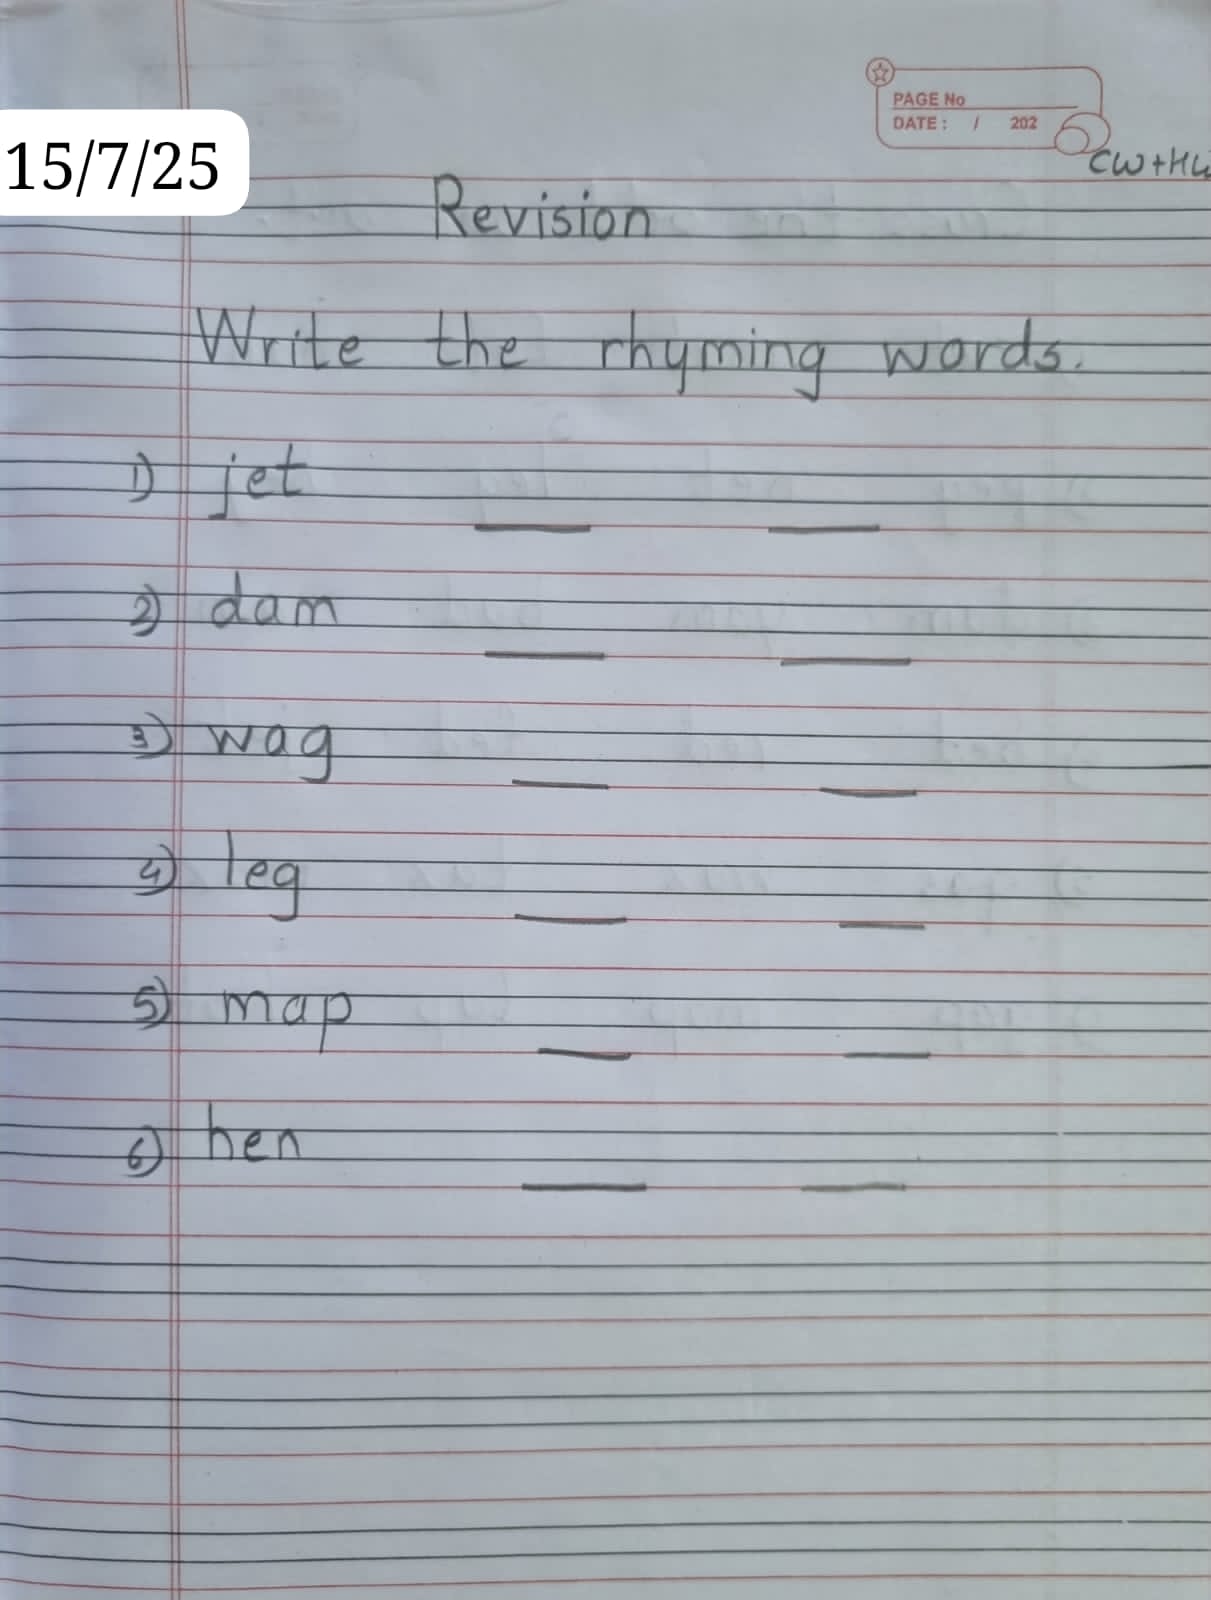 PAGE No
DATE: / 202
15/7/25
CW+HW
Revision
Write the rhyming words.
1) jet
2) dam
3) wag
4) leg
5) map
6) hen